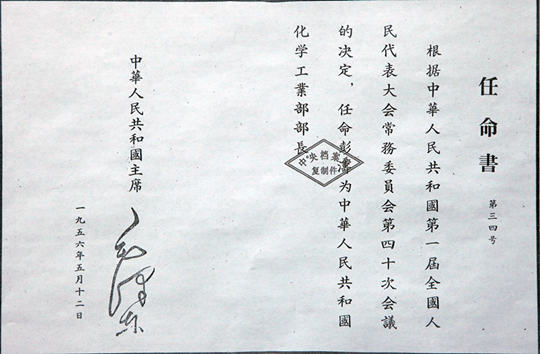 任命書
第三四号
根据中華人民共和國第一届全國人
民代表大会常務委員会第四十次会議
的决定，任命彭涛为中華人民共和國
化学工業部部長
中央档案馆
复制件
中華人民共和國主席
毛澤东
一九五六年五月十二日